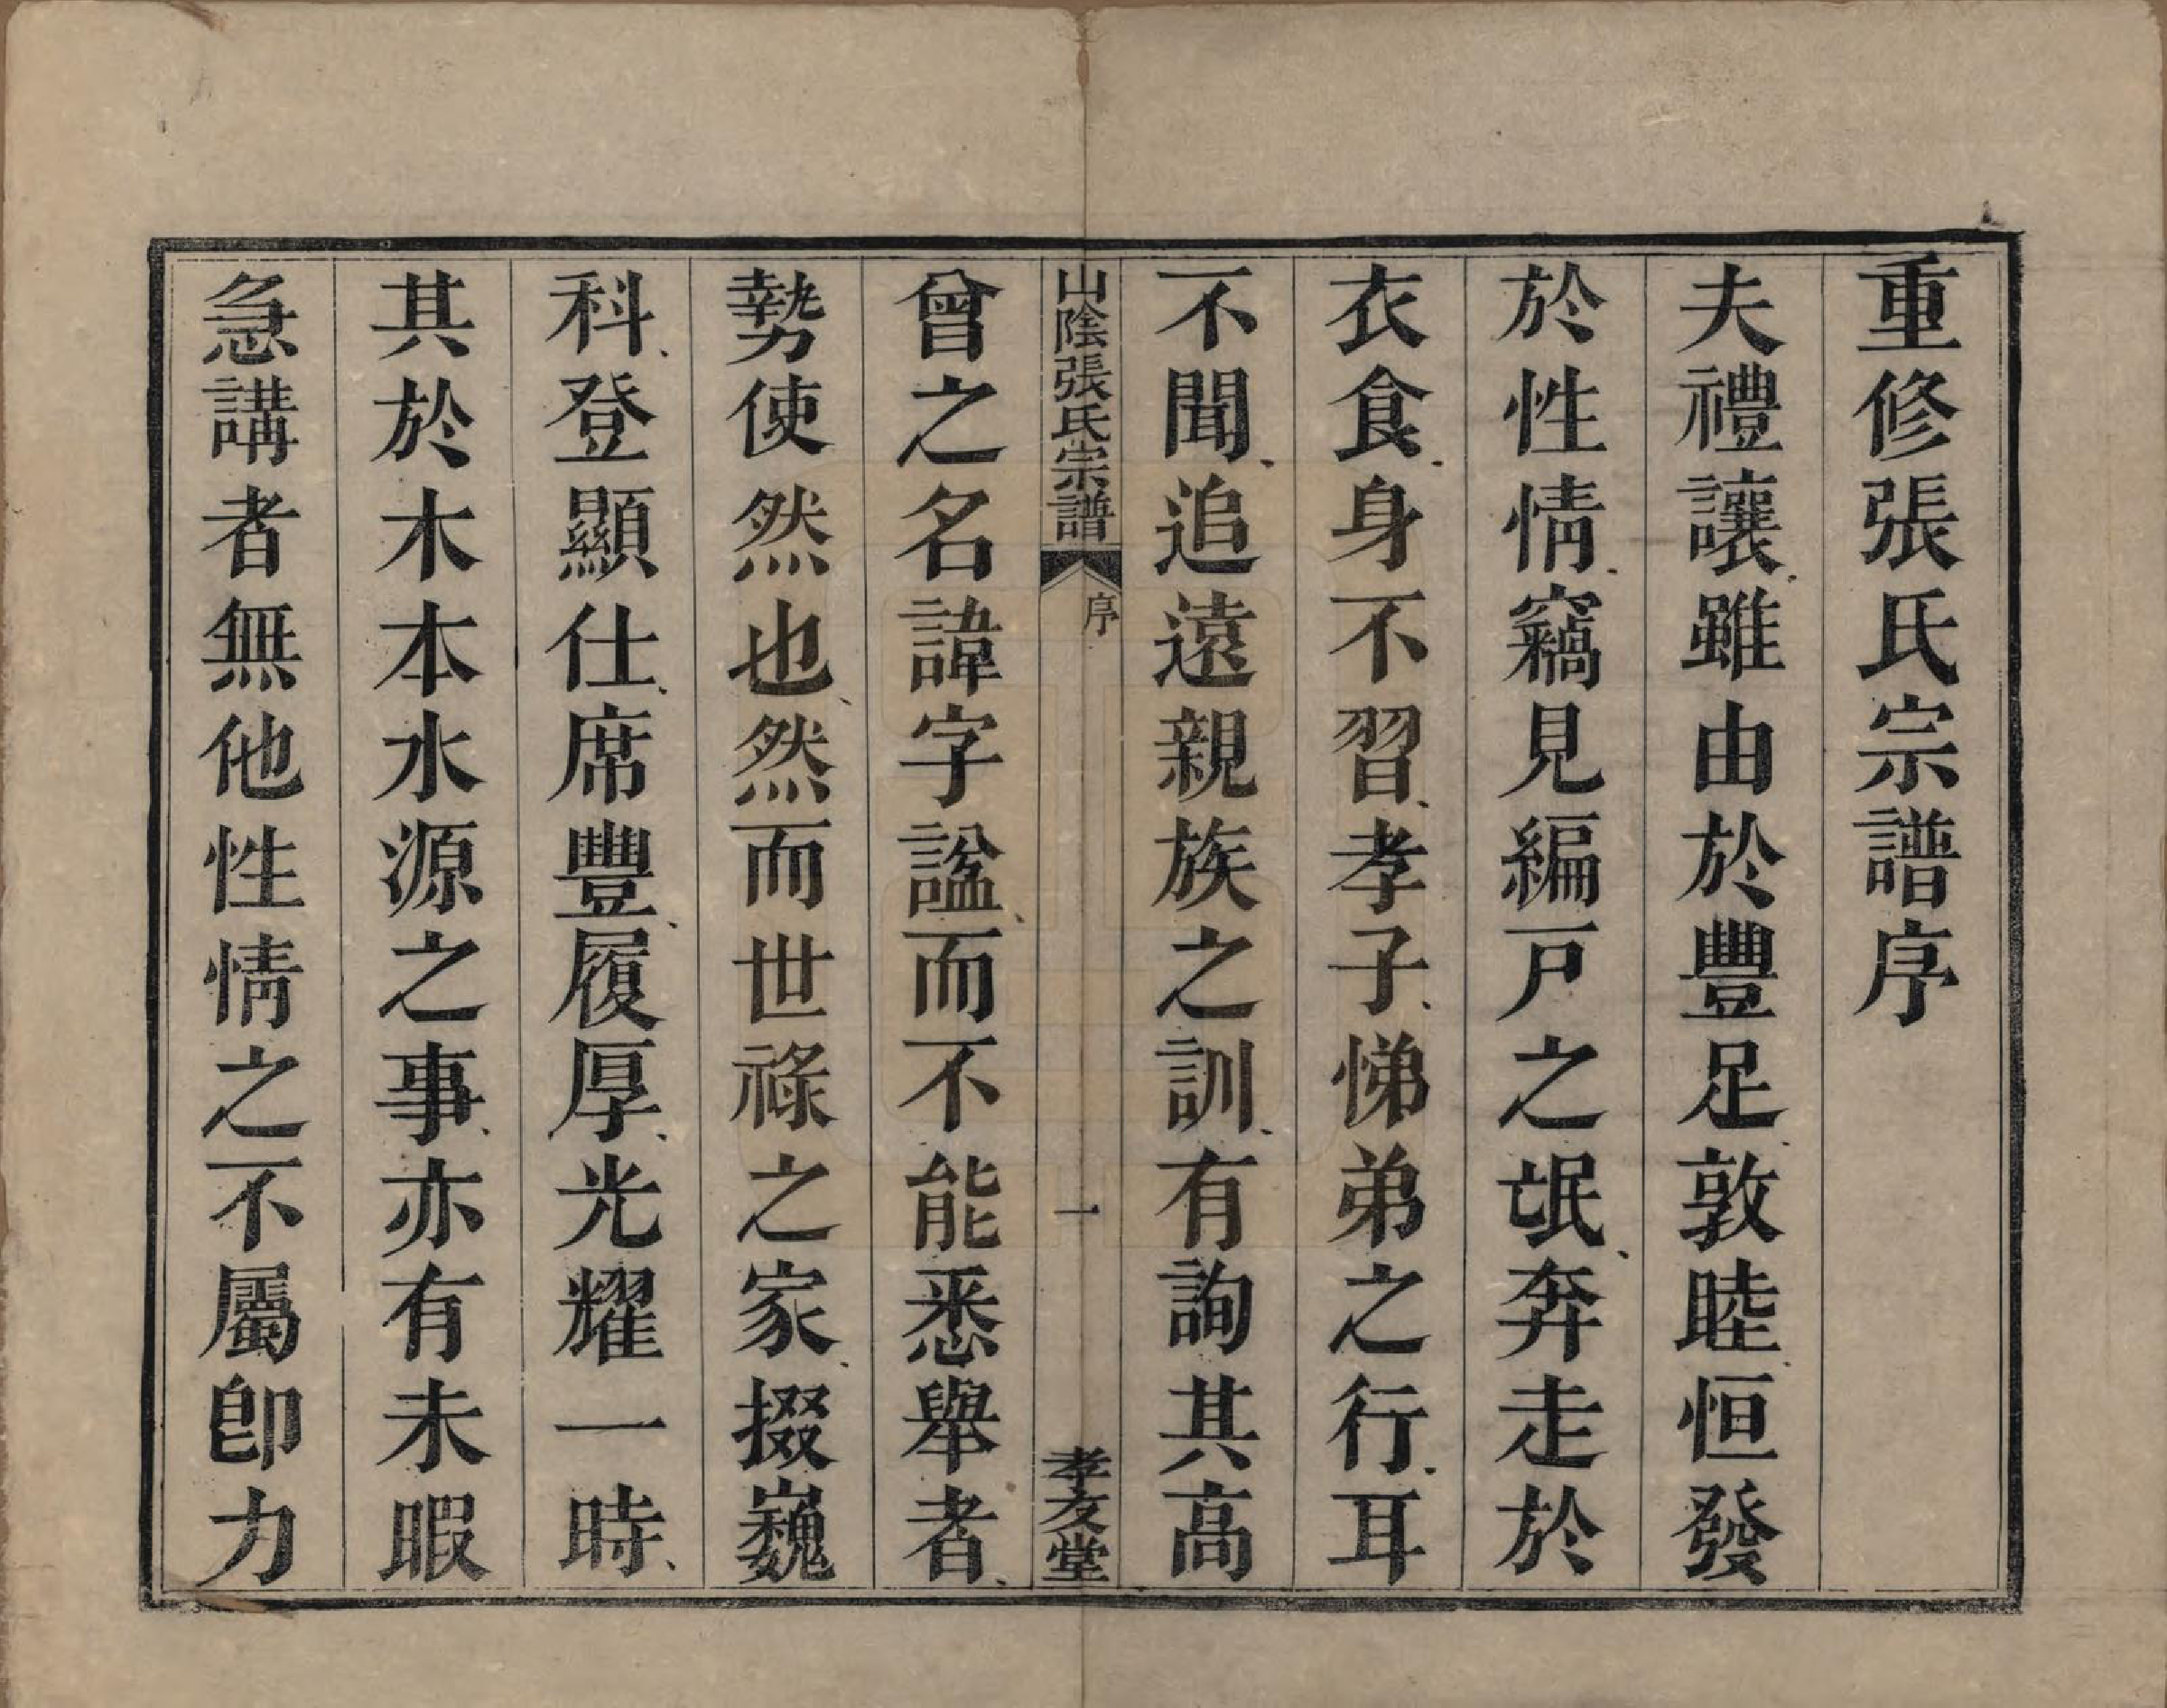 重修張氏宗譜序
夫禮讓雖由於豐足敦睦恒發
於性情竊見編戸之氓奔走於
衣食身不習孝子悌弟之行耳
不聞追遠親族之訓有詢其高
山陰張氏宗譜 序 一 孝友堂
曾之名諱字謚而不能悉舉者
勢使然也然而世祿之家掇巍
科登顯仕席豐履厚光耀一時
其於木本水源之事亦有未暇
急講者無他性情之不屬卽力